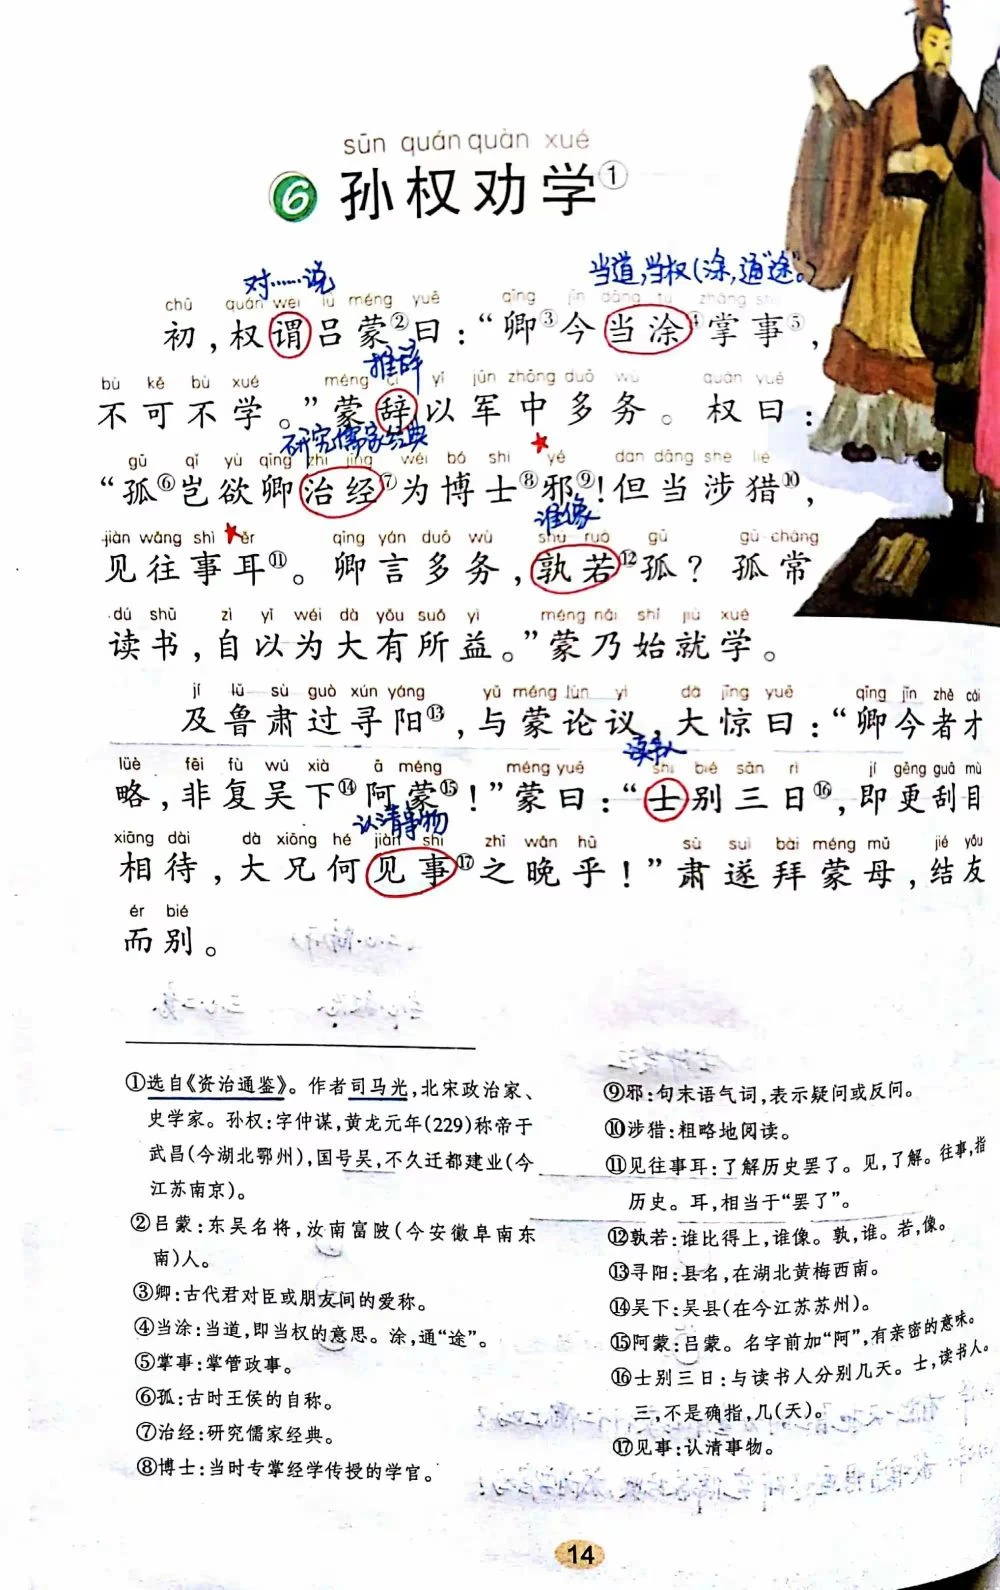 sūn quán quàn xué
6 孙权劝学①
对……说
当道,当权(涂,通“途”。)
初,权谓吕蒙②曰:“卿③今当涂④掌事⑤,
推辞
bù kě bù xué méng cí yǐ jūn zhōng duō wù quán yuē
不可不学。”蒙辞以军中多务。权曰:
研究儒家经典
gū qǐ yù qīng zhì jīng wéi bó shì yé dàn dāng shè liè
“孤⑥岂欲卿治经⑦为博士⑧邪⑨!但当涉猎⑩,
谁像
jiàn wǎng shì ěr qīng yán duō wù shú ruò gū gū cháng
见往事耳⑪。卿言多务,孰若⑫孤?孤常
dú shū zì yǐ wéi dà yǒu suǒ yì méng nǎi shǐ jiù xué
读书,自以为大有所益。”蒙乃始就学。
jí lǔ sù guò xún yáng yǔ méng lùn yì dà jīng yuē qīng jīn zhě cái
及鲁肃过寻阳⑬,与蒙论议,大惊曰:“卿今者才
读书人
lüè fēi fù wú xià ā méng méng yuē shì bié sān rì jí gèng guā mù
略,非复吴下⑭阿蒙⑮!”蒙曰:“士别三日⑯,即更刮目
认清事物
xiāng dài dà xiōng hé jiàn shì zhī wǎn hū sù suì bài méng mǔ jié yǒu
相待,大兄何见事⑰之晚乎!”肃遂拜蒙母,结友
ér bié
而别。
①选自《资治通鉴》。作者司马光,北宋政治家、
史学家。孙权:字仲谋,黄龙元年(229)称帝于
武昌(今湖北鄂州),国号吴,不久迁都建业(今
江苏南京)。
②吕蒙:东吴名将,汝南富陂(今安徽阜南东
南)人。
③卿:古代君对臣或朋友间的爱称。
④当涂:当道,即当权的意思。涂,通“途”。
⑤掌事:掌管政事。
⑥孤:古时王侯的自称。
⑦治经:研究儒家经典。
⑧博士:当时专掌经学传授的学官。
⑨邪:句末语气词,表示疑问或反问。
⑩涉猎:粗略地阅读。
⑪见往事耳:了解历史罢了。见,了解。往事,指
历史。耳,相当于“罢了”。
⑫孰若:谁比得上,谁像。孰,谁。若,像。
⑬寻阳:县名,在湖北黄梅西南。
⑭吴下:吴县(在今江苏苏州)。
⑮阿蒙:吕蒙。名字前加“阿”,有亲密的意味。
⑯士别三日:与读书人分别几天。士,读书人。
三,不是确指,几(天)。
⑰见事:认清事物。
14